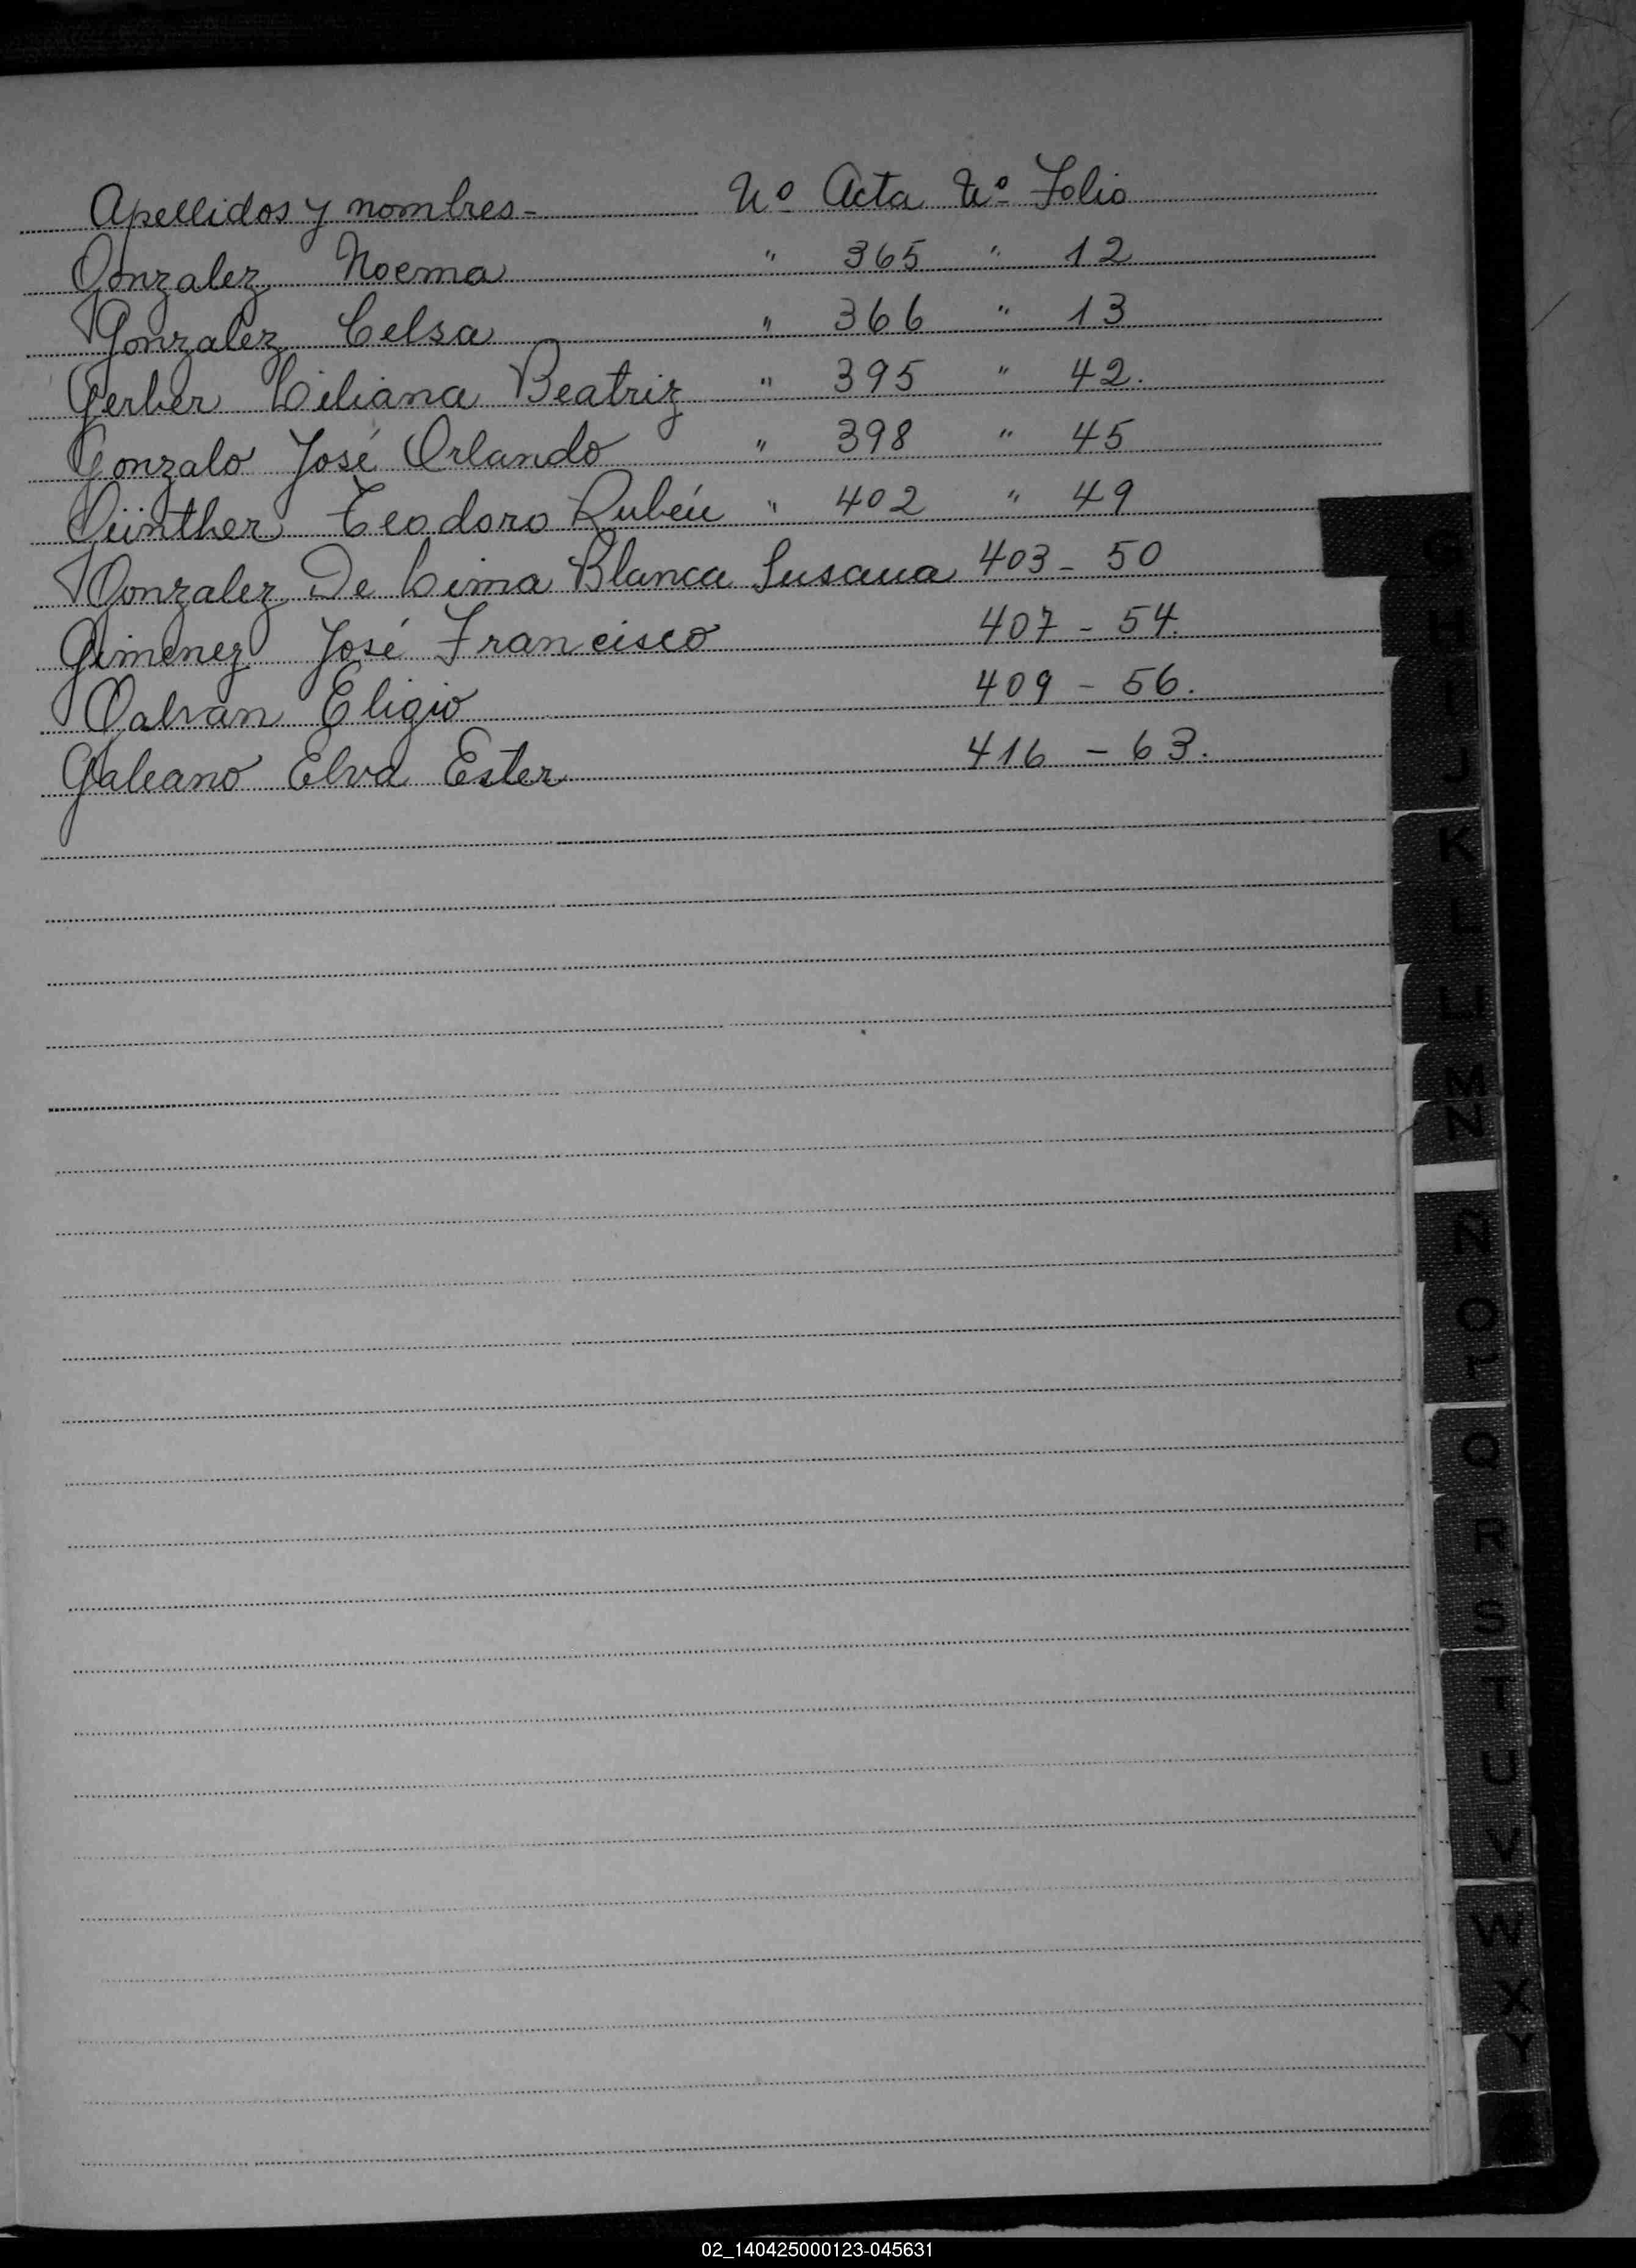 Apellidos y nombres- Nº Acta Nº Folio
Gonzalez Noema " 365 " 12
Gonzalez Celsa " 366 " 13
Gerber Liliana Beatriz " 395 " 42.
Gonzalo José Orlando " 398 " 45
Günther Teodoro Rubén " 402 " 49
Gonzalez De Lima Blanca Susana 403 - 50
Gimenez José Francisco 407 - 54.
Galvan Eligio 409 - 56.
Galeano Elva Ester 416 - 63.
G
I
J
K
L
M
N
N
O
P
Q
R
S
T
U
V
W
X
Y
02_140425000123-045631